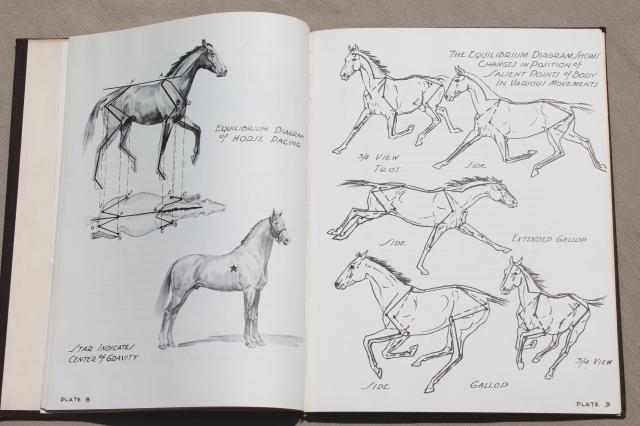 EQUILIBRIUM DIAGRAM
of HORSE PACING
STAR INDICATES
CENTER of GRAVITY
PLATE 8
THE EQUILIBRIUM DIAGRAM SHOWS
CHANGES IN POSITION of
SALIENT POINTS of BODY
IN VARIOUS MOVEMENTS
3/4 VIEW
TROT
SIDE
SIDE
EXTENDED GALLOP
SIDE
GALLOP
3/4 VIEW
PLATE 9